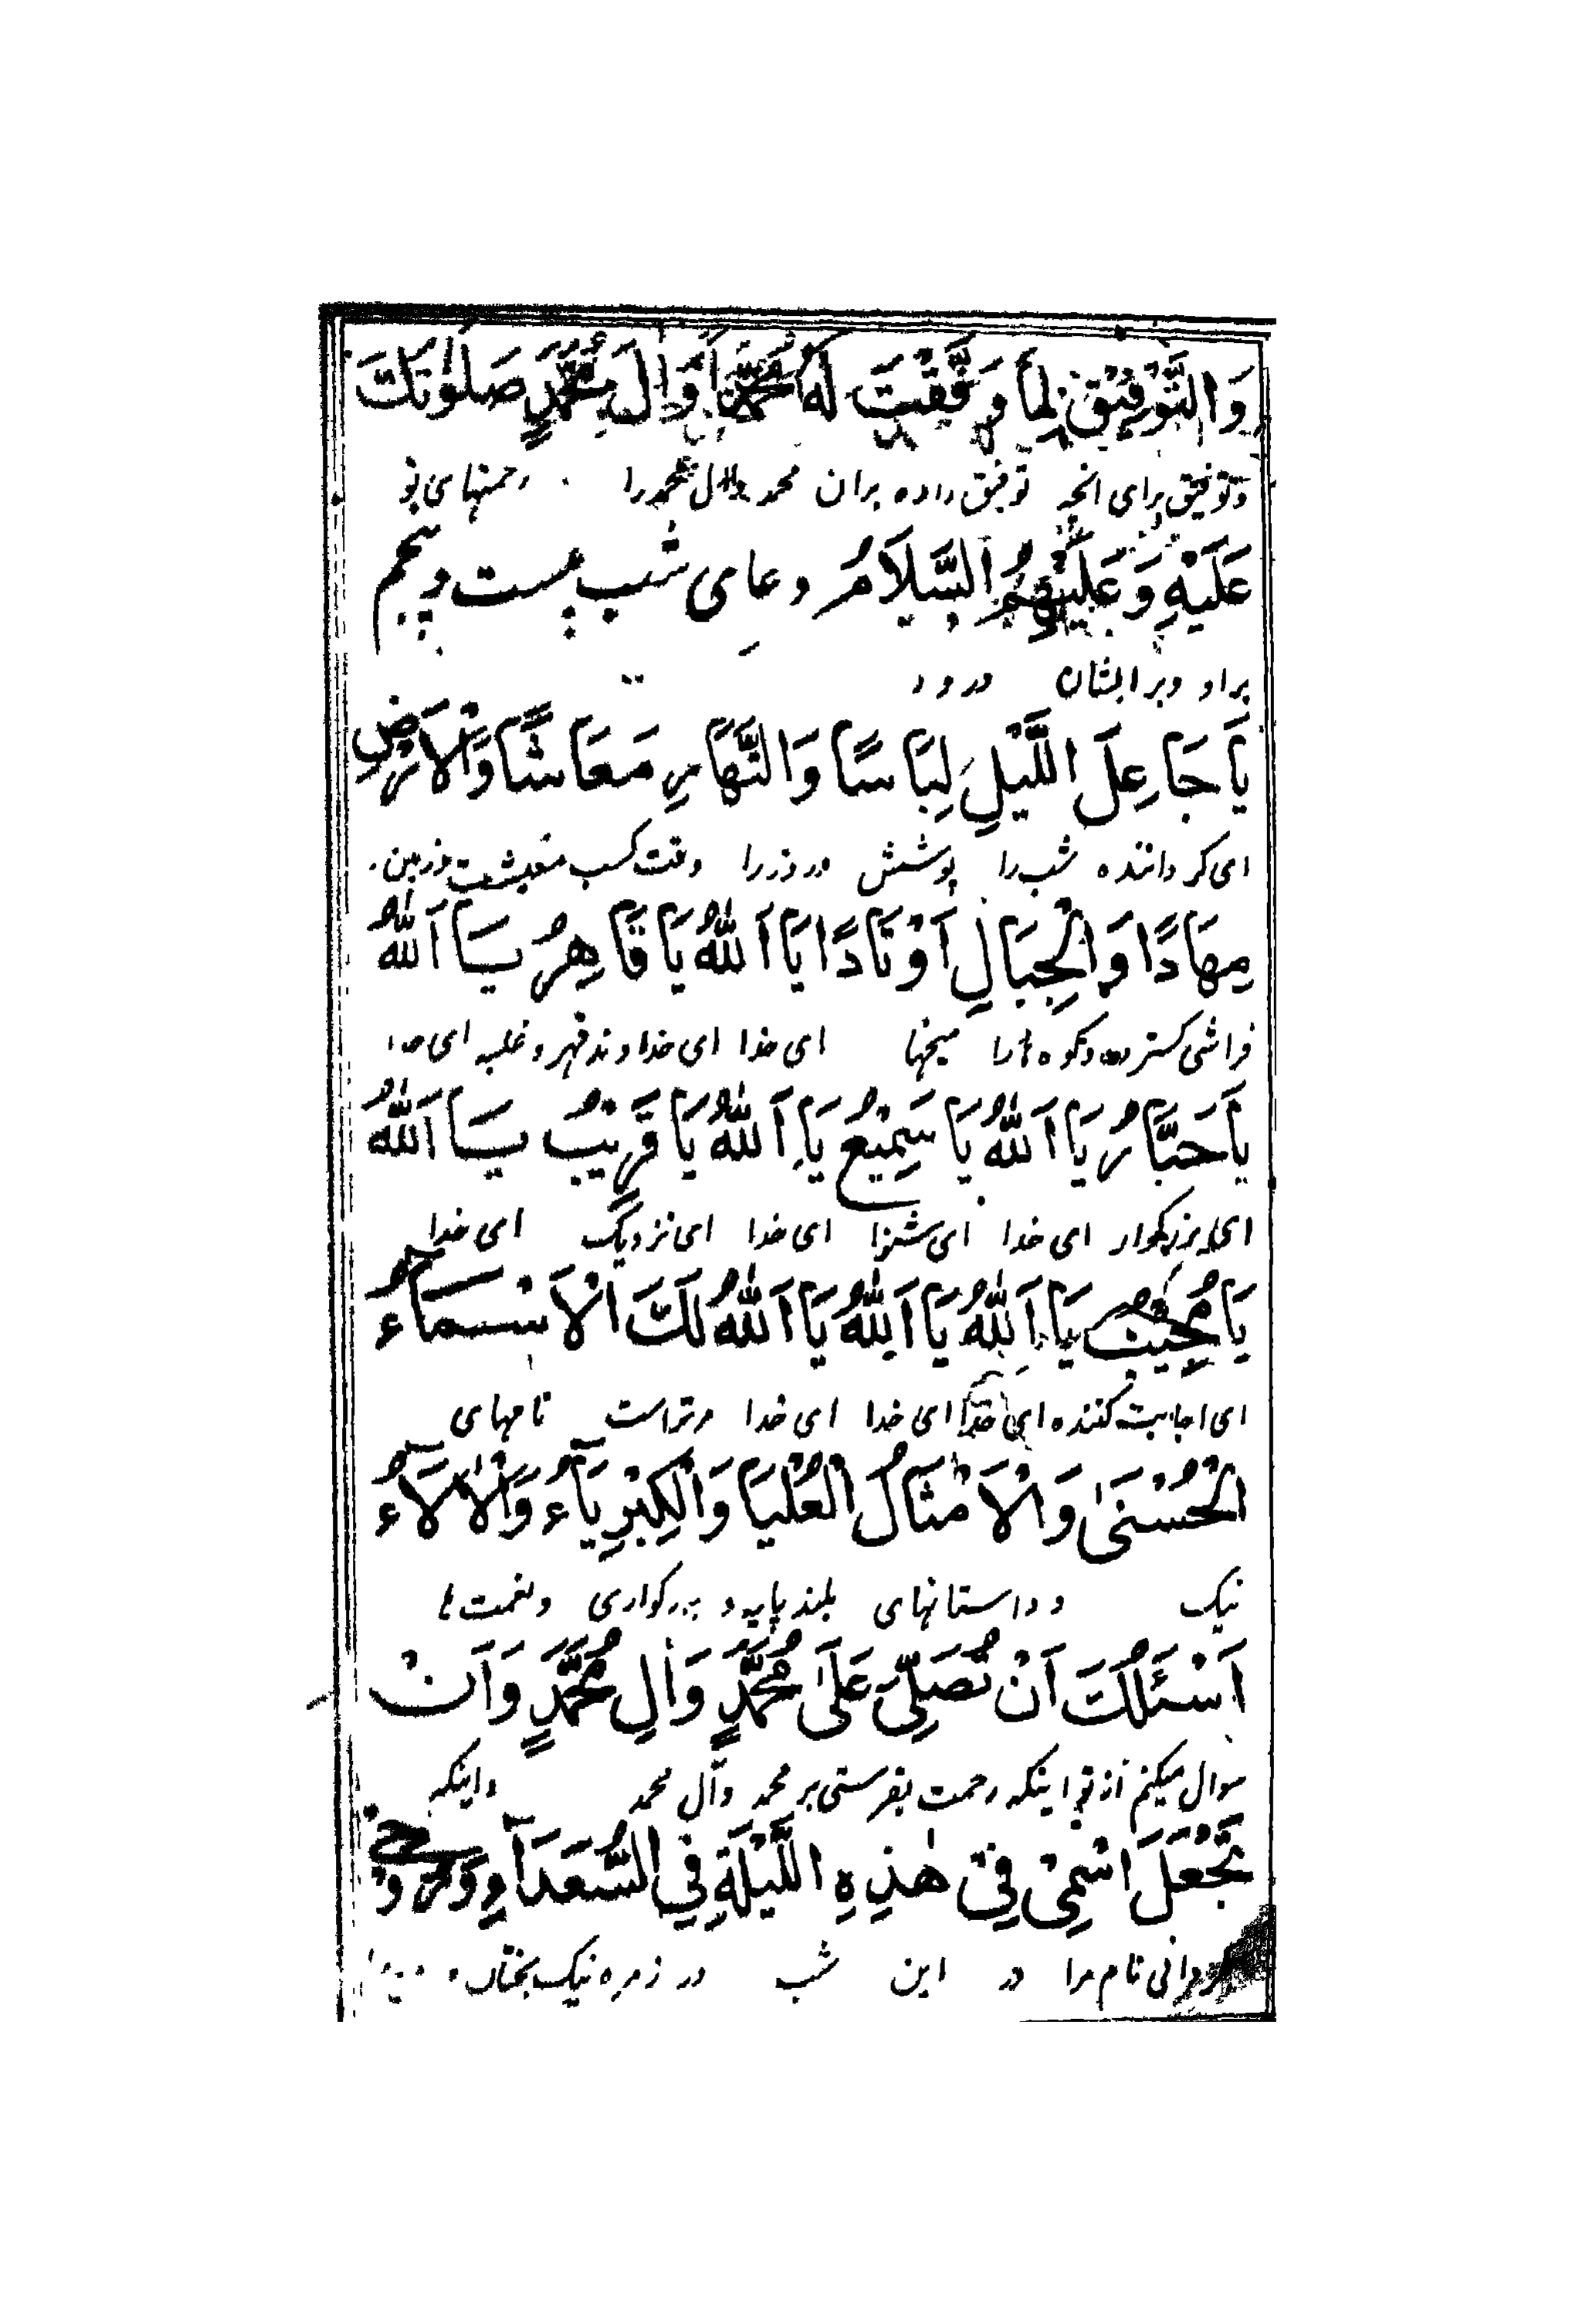 وَالتَّوْفِيْقِ لِمَا وَفَّقْتَ لَهُ مُحَمَّدًا وَّاٰلَ مُحَمَّدٍ صَلَوٰتُكَ
وتوفیق برای انچه توفیق داده بران محمد وال محمد را رحمتهای تو
عَلَيْهِ وَعَلَيْهِمُ السَّلَامُ دعای شب بست و پنجم
براو وبرایشان درود
يَا جَاعِلَ اللَّيْلِ لِبَاسًا وَالنَّهَارِ مَعَاشًا وَّالْاَرْضِ
ای گرداننده شب را پوشش وروز را وقت کسب معیشت وزمین
مِهَادًا وَالْجِبَالِ اَوْتَادًا يَا اَللّٰهُ يَا قَاهِرُ يَا اَللّٰهُ
فراشی گسترده وکوه ها را میخها ای خدا ای خداوند قهر وغلبه ای خدا
يَا جَبَّارُ يَا اَللّٰهُ يَا سَمِيْعُ يَا اَللّٰهُ يَا قَرِيْبُ يَا اَللّٰهُ
ای بزرگوار ای خدا ای شنوا ای خدا ای نزدیک ای خدا
يَا مُجِيْبُ يَا اَللّٰهُ يَا اَللّٰهُ يَا اَللّٰهُ لَكَ الْاَسْمَاۤءُ
ای اجابت کننده ای خدا ای خدا ای خدا مرتراست نامهای
الْحُسْنٰى وَالْاَمْثَالُ الْعُلْيَا وَالْكِبْرِيَاۤءُ وَالْاٰلَاۤءُ
نیک وداستانهای بلند پایه و بزرگواری ونعمت ها
اَسْئَلُكَ اَنْ تُصَلِّيَ عَلٰى مُحَمَّدٍ وَاٰلِ مُحَمَّدٍ وَاَنْ
سوال میکنم از تو اینکه رحمت بفرستی بر محمد وآل محمد واینکه
تَجْعَلَ اسْمِيْ فِيْ هٰذِهِ اللَّيْلَةِ فِي السُّعَدَاۤءِ وَرُوْحِيْ
گردانی نام مرا در این شب در زمره نیک بختان